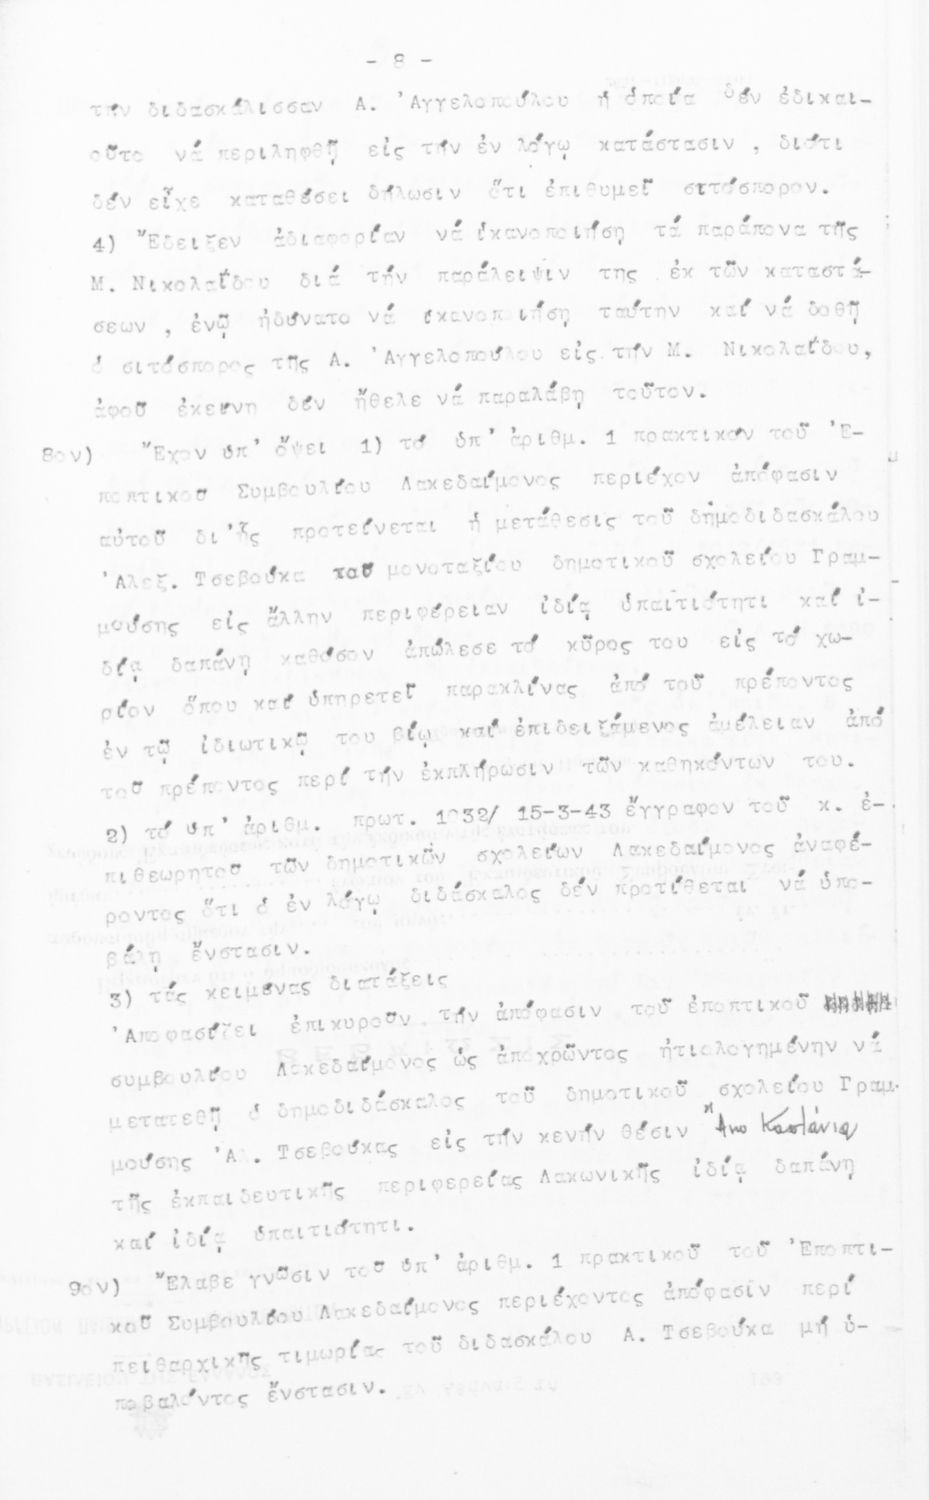 - 8 -
τήν διδασκάλισσαν Α. 'Αγγελοπούλου ἡ ὁποία δέν ἐδικαι-
οῦτο νά περιληφθῇ εἰς τήν ἐν λόγῳ κατάστασιν , διότι
δέν εἶχε καταθέσει δήλωσιν ὅτι ἐπιθυμεῖ σιτόσπορον.
4) Ἔδειξεν ἀδιαφορίαν νά ἱκανοποιήση τά παράπονα τῆς
Μ. Νικολαΐδου διά τήν παράλειψιν της ἐκ τῶν καταστά-
σεων , ἐνῷ ἠδύνατο νά ἱκανοποιήση ταύτην καί νά δοθῇ
ὁ σιτόσπορος τῆς Α. 'Αγγελοπούλου εἰς τήν Μ. Νικολαΐδου,
ἀφοῦ ἐκείνη δέν ἤθελε νά παραλάβη τοῦτον.
8ον) Ἔχον ὑπ' ὄψει 1) τό ὑπ' ἀριθμ. 1 πρακτικόν τοῦ 'Ε-
ποπτικοῦ Συμβουλίου Λακεδαίμονος περιέχον ἀπόφασιν
αὐτοῦ δι'ἧς προτείνεται ἡ μετάθεσις τοῦ δημοδιδασκάλου
'Αλεξ. Τσεβούκα τοῦ μονοταξίου δημοτικοῦ σχολείου Γραμ-
μούσης εἰς ἄλλην περιφέρειαν ἰδίᾳ ὑπαιτιότητι καί ἰ-
δίᾳ δαπάνῃ καθόσον ἀπώλεσε τό κῦρος του εἰς τό χω-
ρίον ὅπου καί ὑπηρετεῖ παρακλίνας ἀπό τοῦ πρέποντος
ἐν τῷ ἰδιωτικῷ του βίῳ καί ἐπιδειξάμενος ἀμέλειαν ἀπό
τοῦ πρέποντος περί τήν ἐκπλήρωσιν τῶν καθηκόντων του.
2) τό ὑπ' ἀριθμ. πρωτ. 1032/ 15-3-43 ἔγγραφον τοῦ κ. ἐ-
πιθεωρητοῦ τῶν δημοτικῶν σχολείων Λακεδαίμονος ἀναφέ-
ροντος ὅτι ὁ ἐν λόγῳ διδάσκαλος δέν προτίθεται νά ὑπο-
βάλῃ ἔνστασιν.
3) τάς κειμένας διατάξεις
'Αποφασίζει ἐπικυροῦν τήν ἀπόφασιν τοῦ ἐποπτικοῦ
συμβουλίου Λακεδαίμονος ὡς ἀποχρῶντος ᾐτιολογημένην νά
μετατεθῇ ὁ δημοδιδάσκαλος τοῦ δημοτικοῦ σχολείου Γραμ-
μούσης 'Αλ. Τσεβούκας εἰς τήν κενήν θέσιν Ἄνω Καστάνια
τῆς ἐκπαιδευτικῆς περιφερείας Λακωνικῆς ἰδίᾳ δαπάνῃ
καί ἰδίᾳ ὑπαιτιότητι.
9ον) Ἔλαβε γνῶσιν τοῦ ὑπ' ἀριθμ. 1 πρακτικοῦ τοῦ 'Εποπτι-
κοῦ Συμβουλίου Λακεδαίμονος περιέχοντος ἀπόφασιν περί
πειθαρχικῆς τιμωρίας τοῦ διδασκάλου Α. Τσεβούκα μή ὑ-
ποβαλόντος ἔνστασιν.